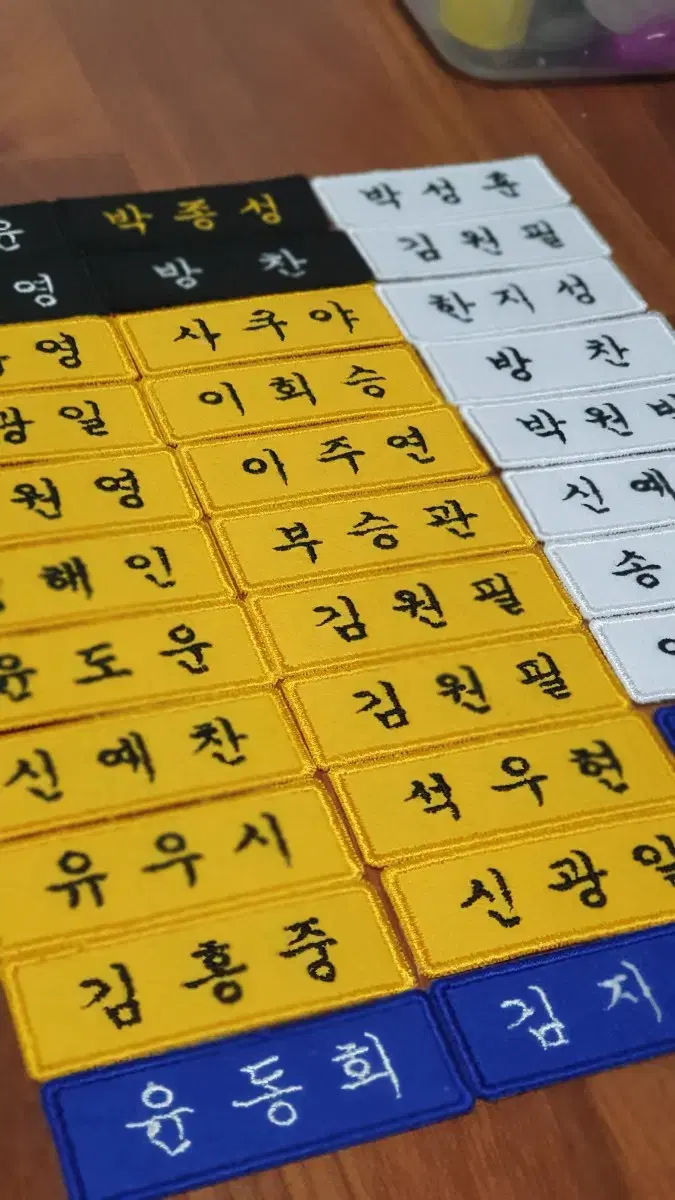 박종성
박성훈
영
방찬
김원필
영
사쿠야
한지성
일
이희승
방찬
원영
이주연
박원
해인
부승관
신예
윤도운
김원필
송
신예찬
김원필
유우시
석우현
김홍중
신광일
윤동희
김지